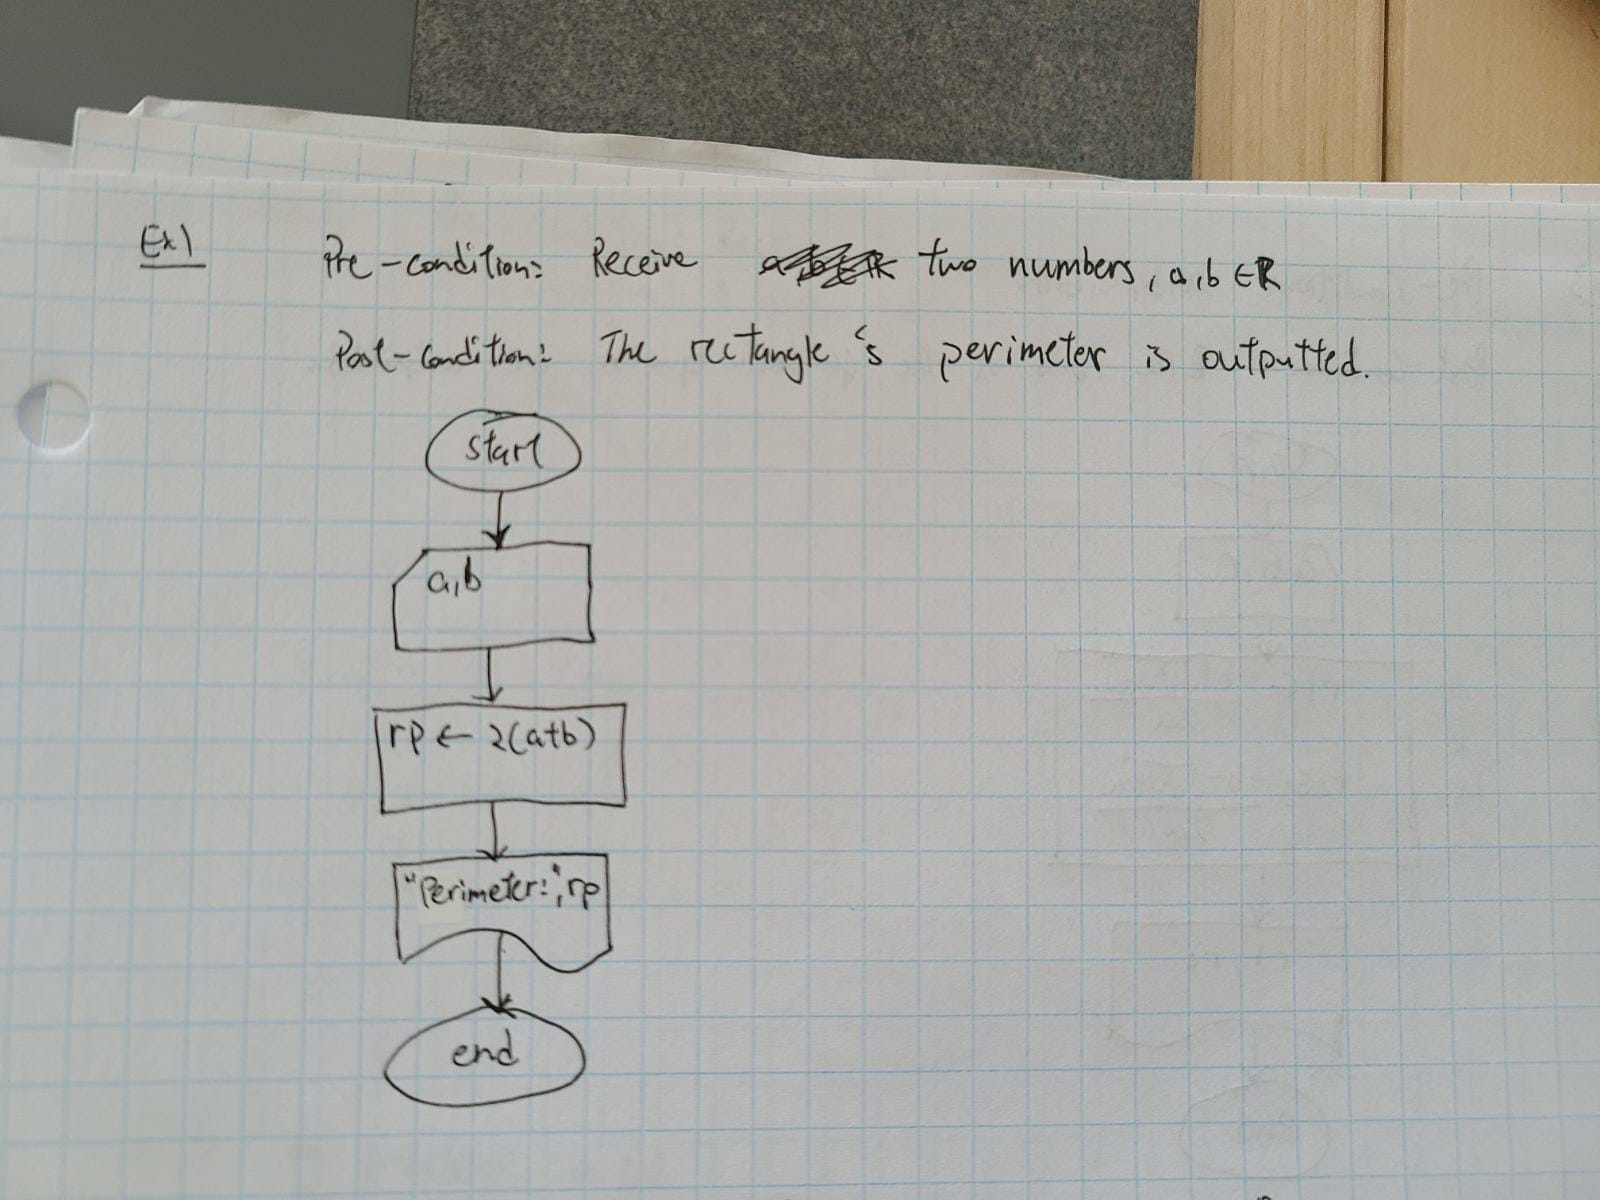 Ex1
Pre-condition: Receive two numbers, a,b ∈ R
Post-condition: The rectangle's perimeter is outputted.
start
a,b
rp ← 2(a+b)
"Perimeter:", rp
end